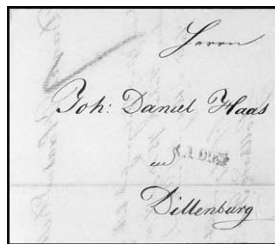 Herrn
Joh: Daniel Haas
in
Dillenburg